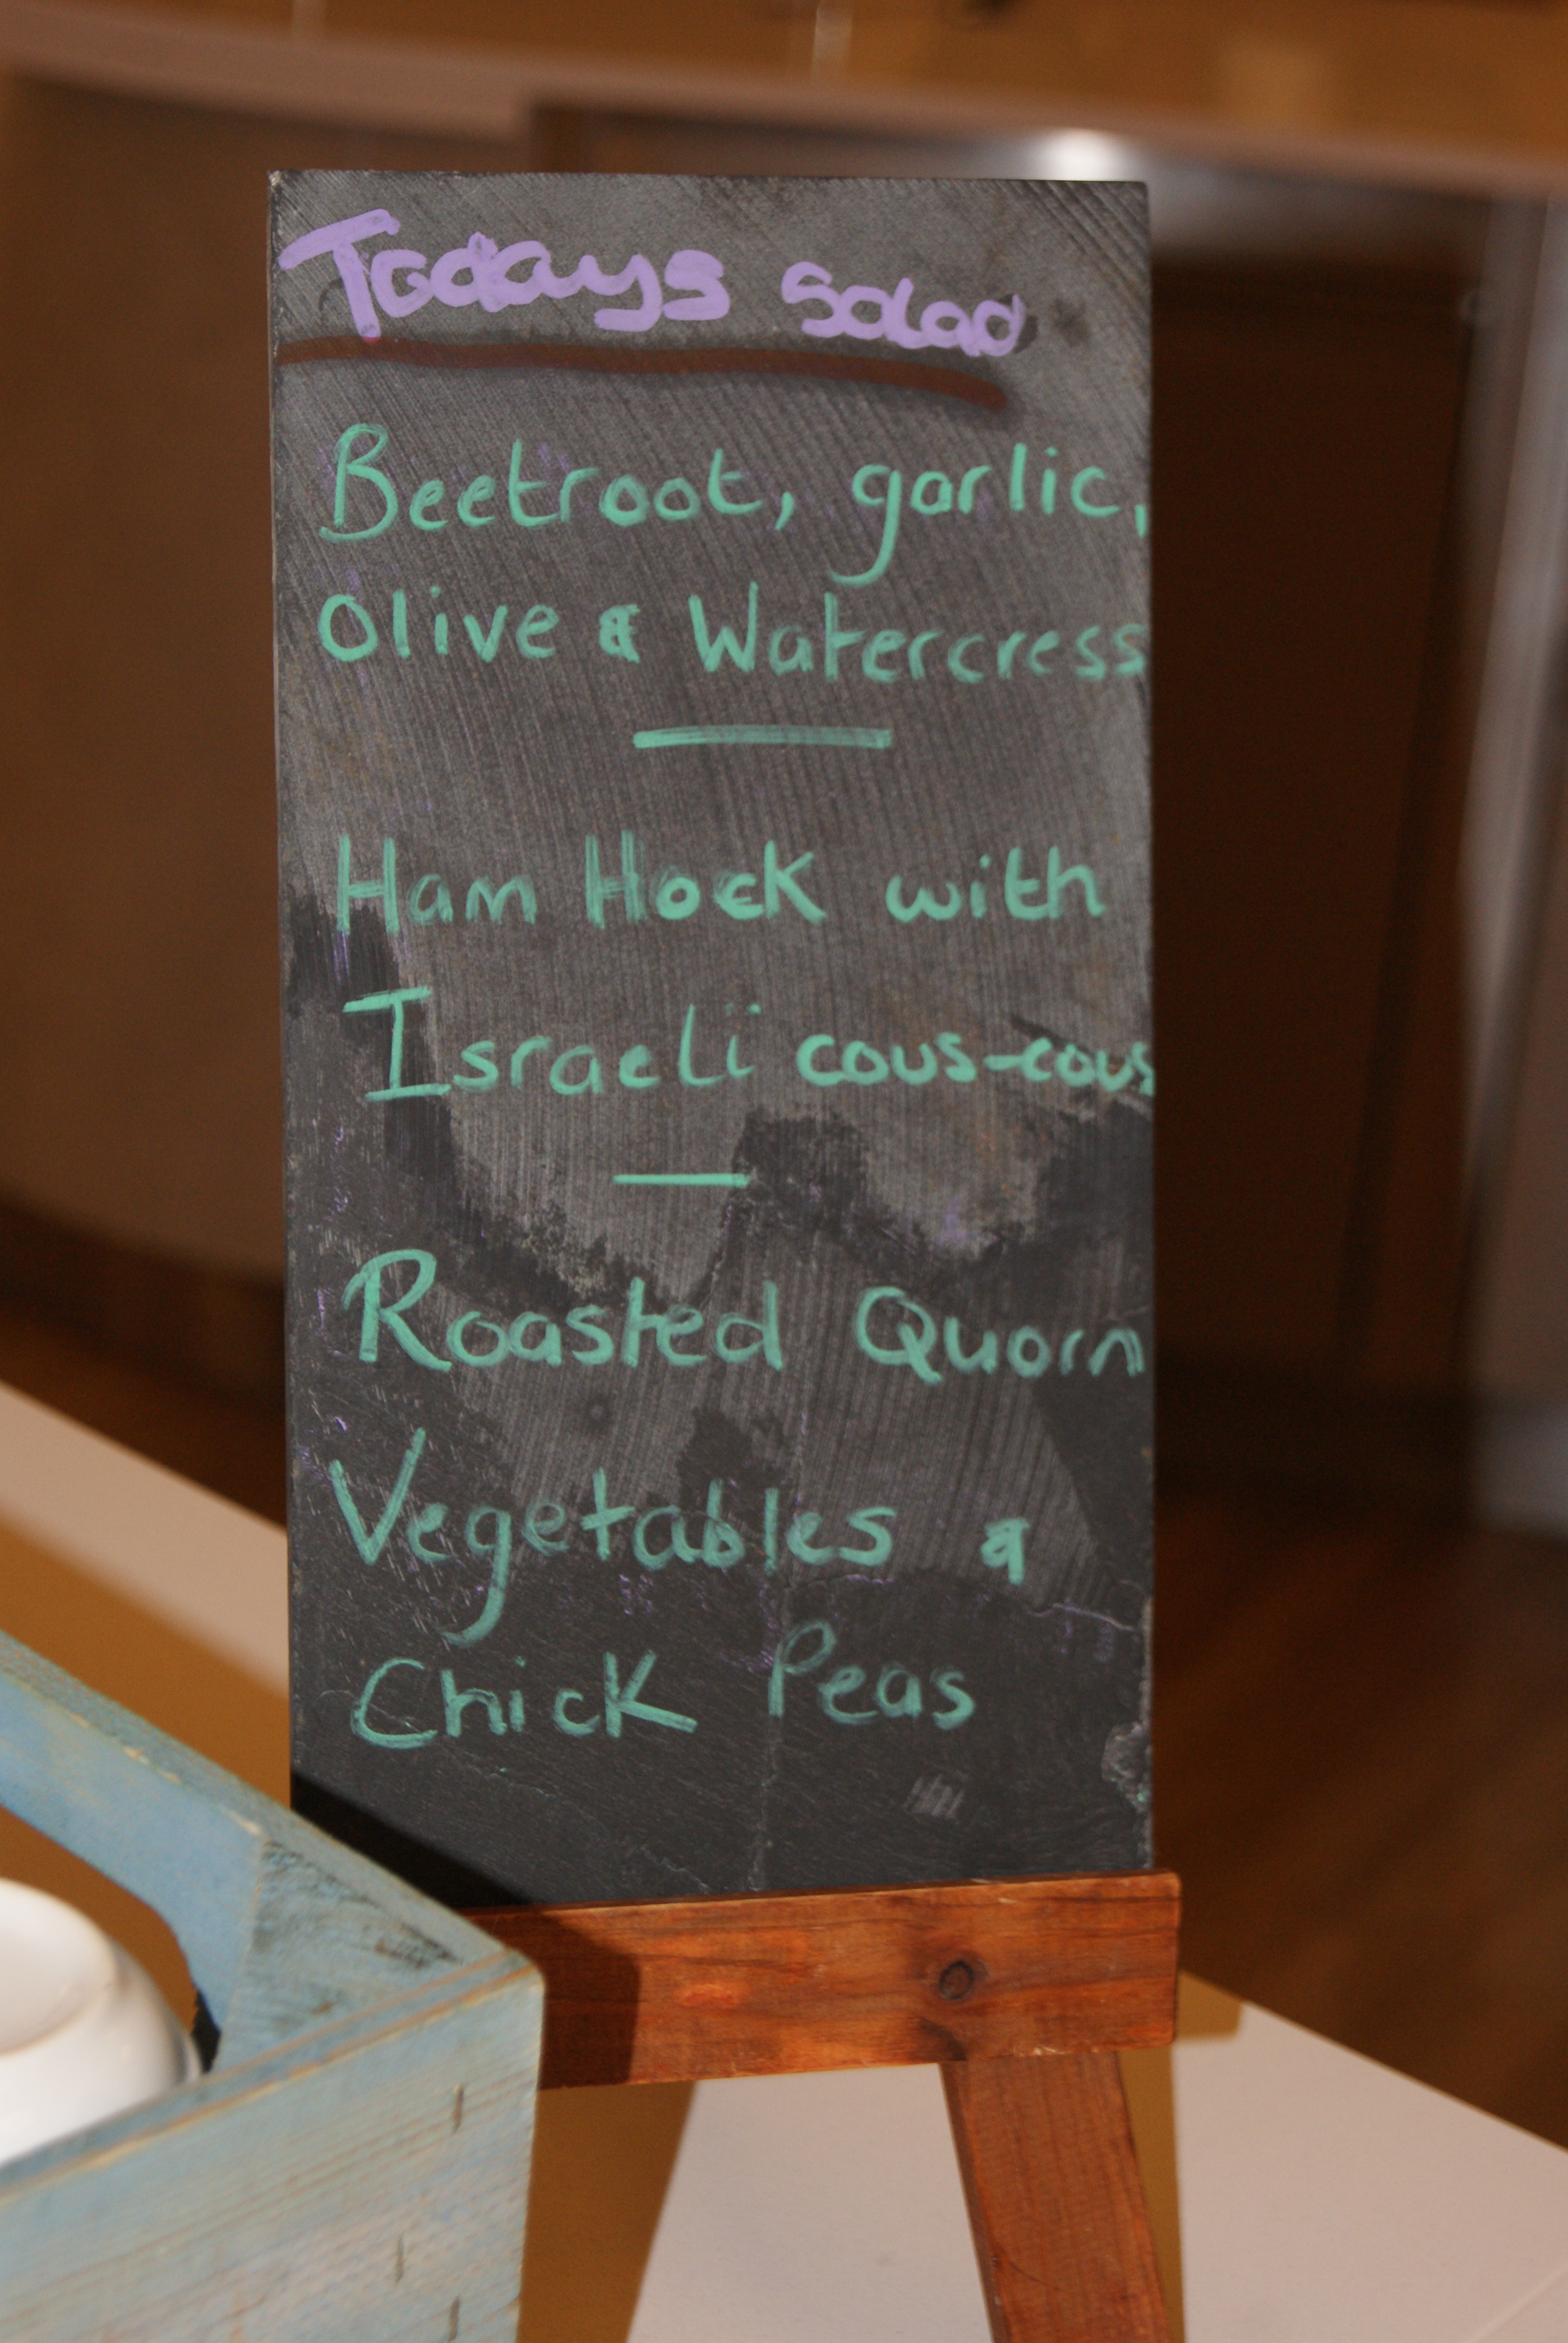 Todays Salad
Beetroot, garlic,
Olive & Watercress
Ham Hock with
Israeli cous-cous
Roasted Quorn
Vegetables &
Chick Peas